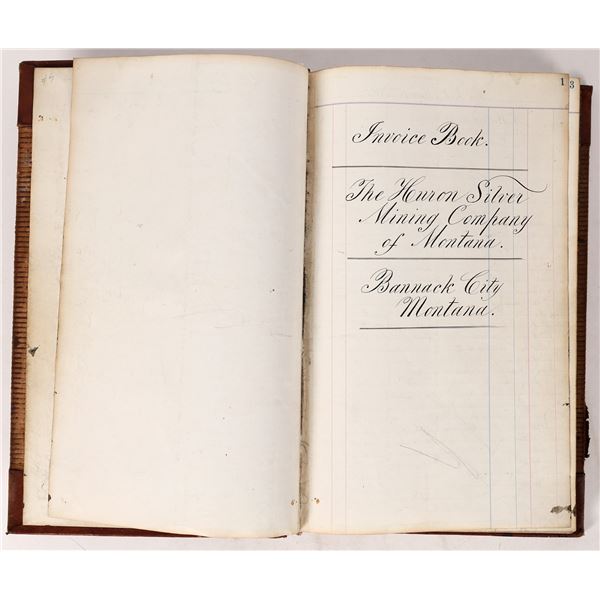 1 3
Invoice Book.
The Huron Silver
Mining Company
of Montana.
Bannack City
Montana.